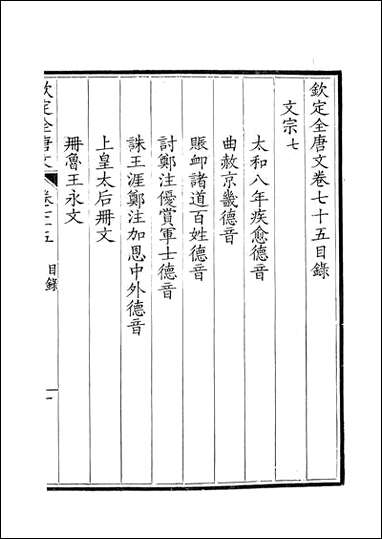 欽定全唐文卷七十五目錄
文宗七
太和八年疾愈德音
曲赦京畿德音
賑䘏諸道百姓德音
討鄭注優賞軍士德音
誅王涯鄭注加恩中外德音
上皇太后冊文
冊魯王永文
欽定全唐文
目錄
一